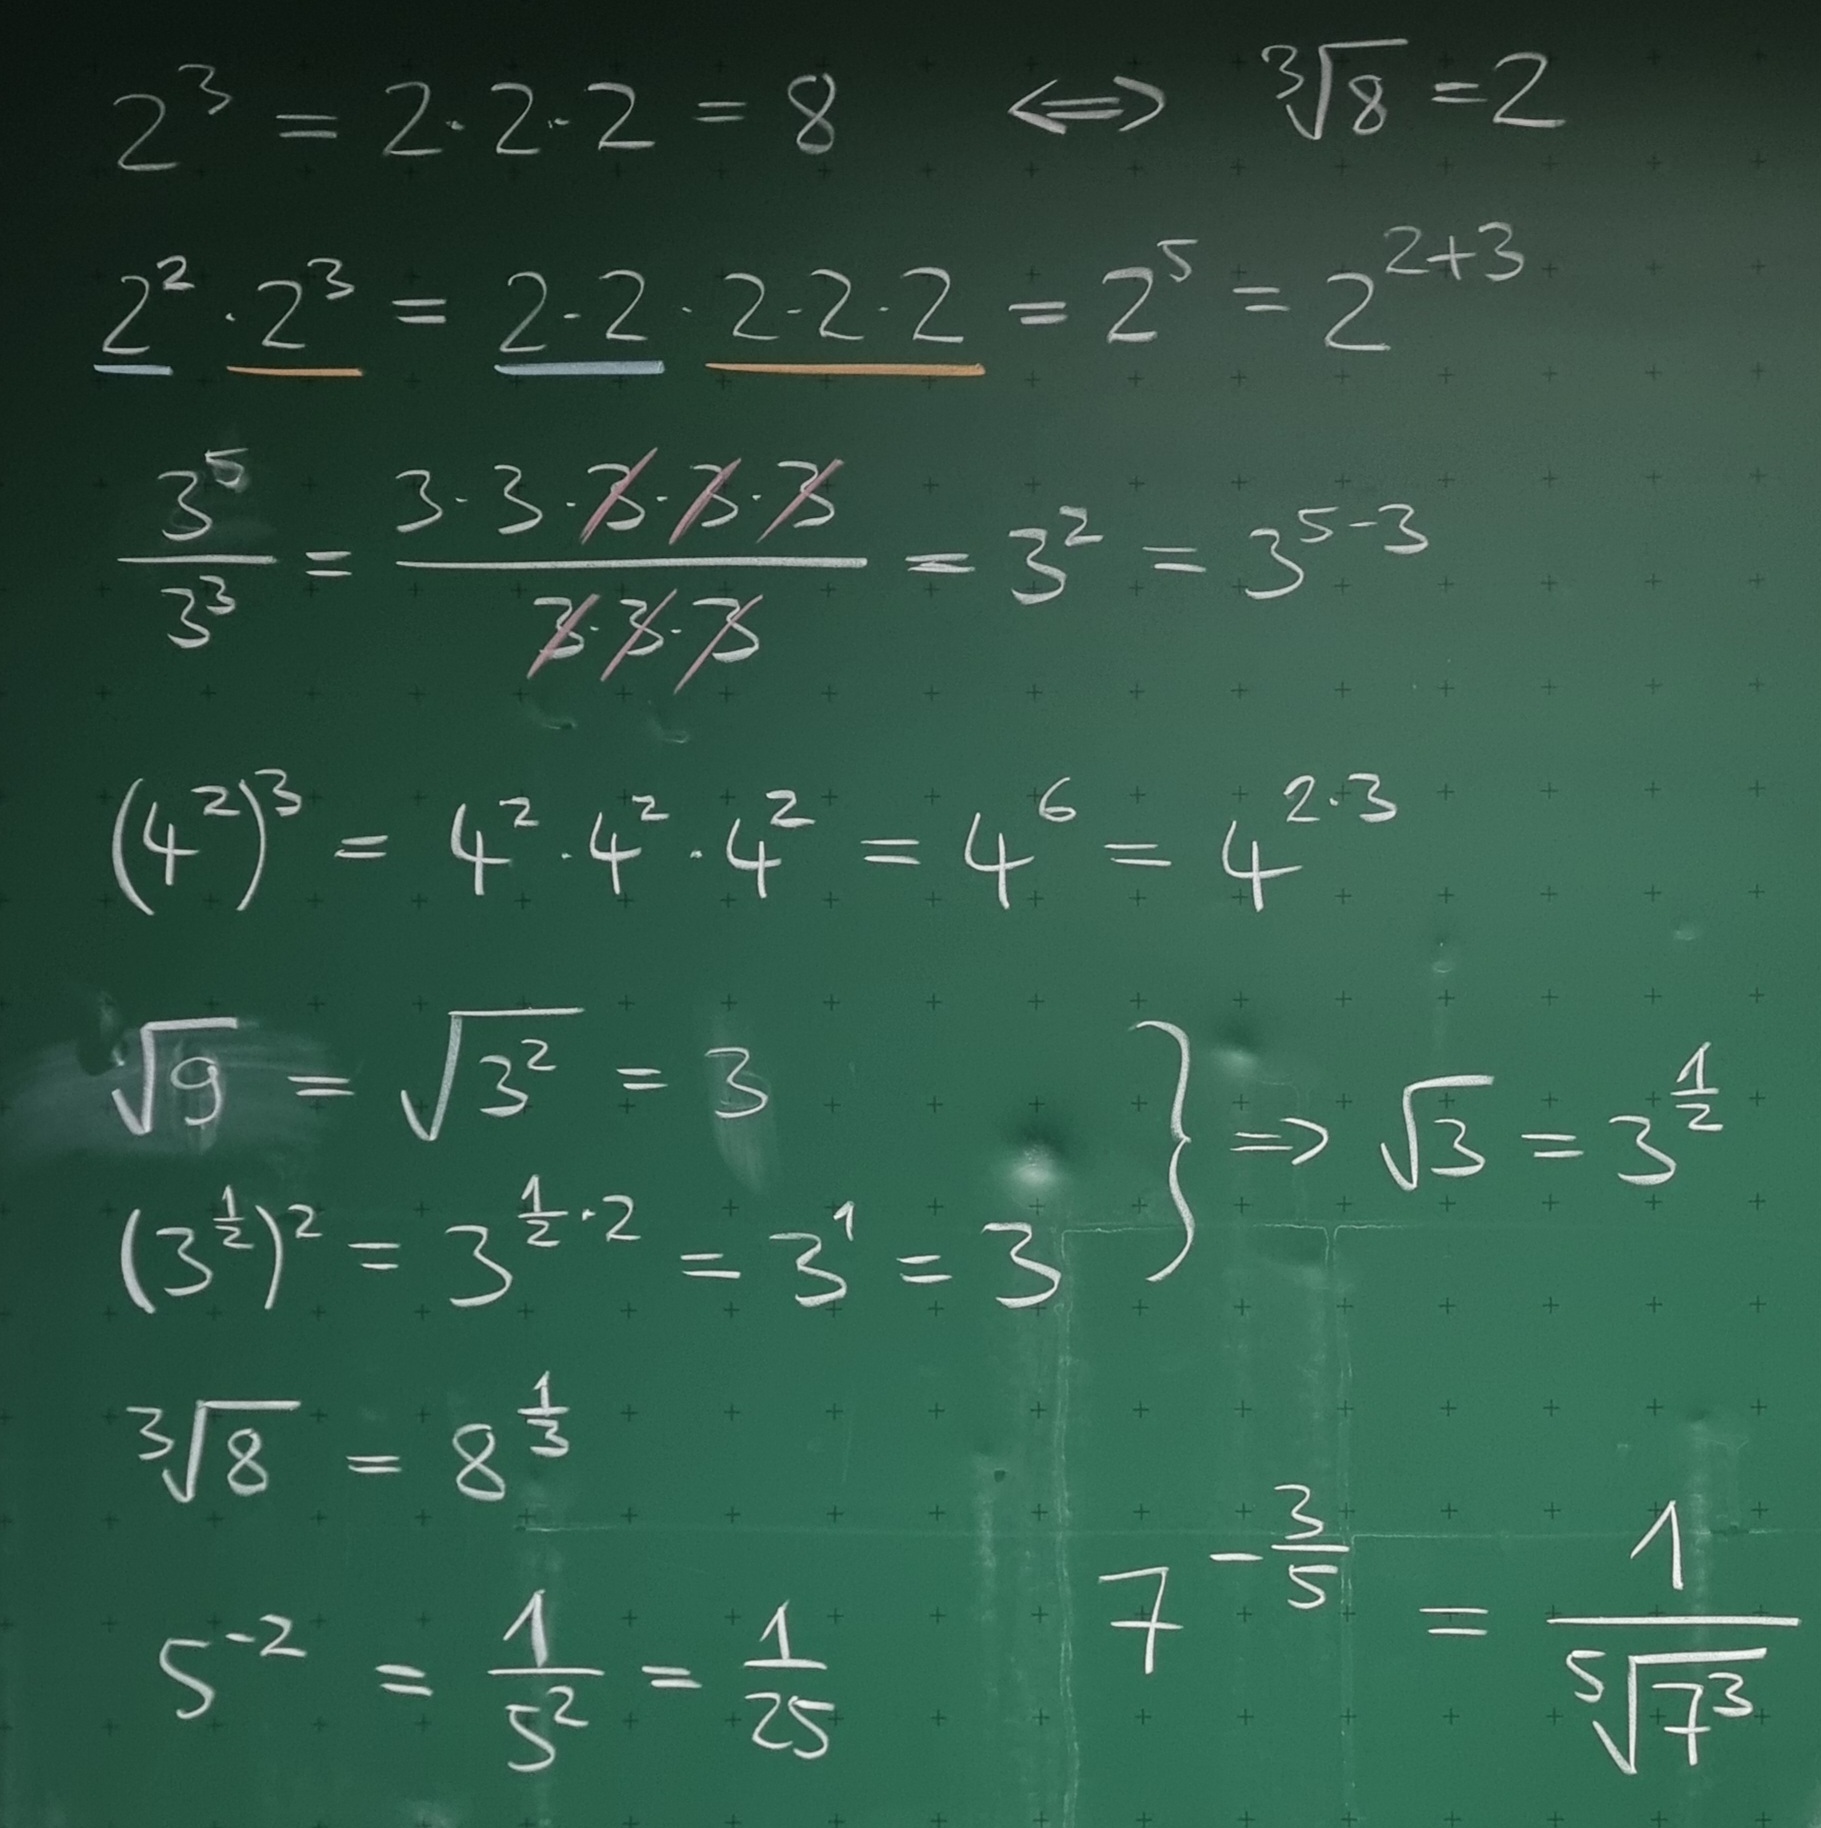 2³ = 2·2·2 = 8 ⟺ ³√8 = 2
2² · 2³ = 2·2 · 2·2·2 = 2⁵ = 2²⁺³
3⁵/3³ = (3·3·3·3·3)/(3·3·3) = 3² = 3⁵⁻³
(4²)³ = 4² · 4² · 4² = 4⁶ = 4^(2·3)
√9 = √(3²) = 3
(3^(1/2))² = 3^(1/2 · 2) = 3¹ = 3 } ⇒ √3 = 3^(1/2)
³√8 = 8^(1/3)
5⁻² = 1/5² = 1/25
7^(-3/5) = 1/⁵√(7³)